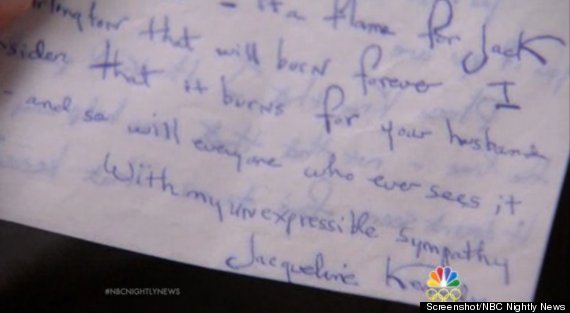 - it a flame for Jack
Arlington that will burn forever I
consider that it burns for your husband
- and so will everyone who ever sees it.
With my inexpressible sympathy
Jacqueline
#NBCNIGHTLYNEWS
Screenshot/NBC Nightly News